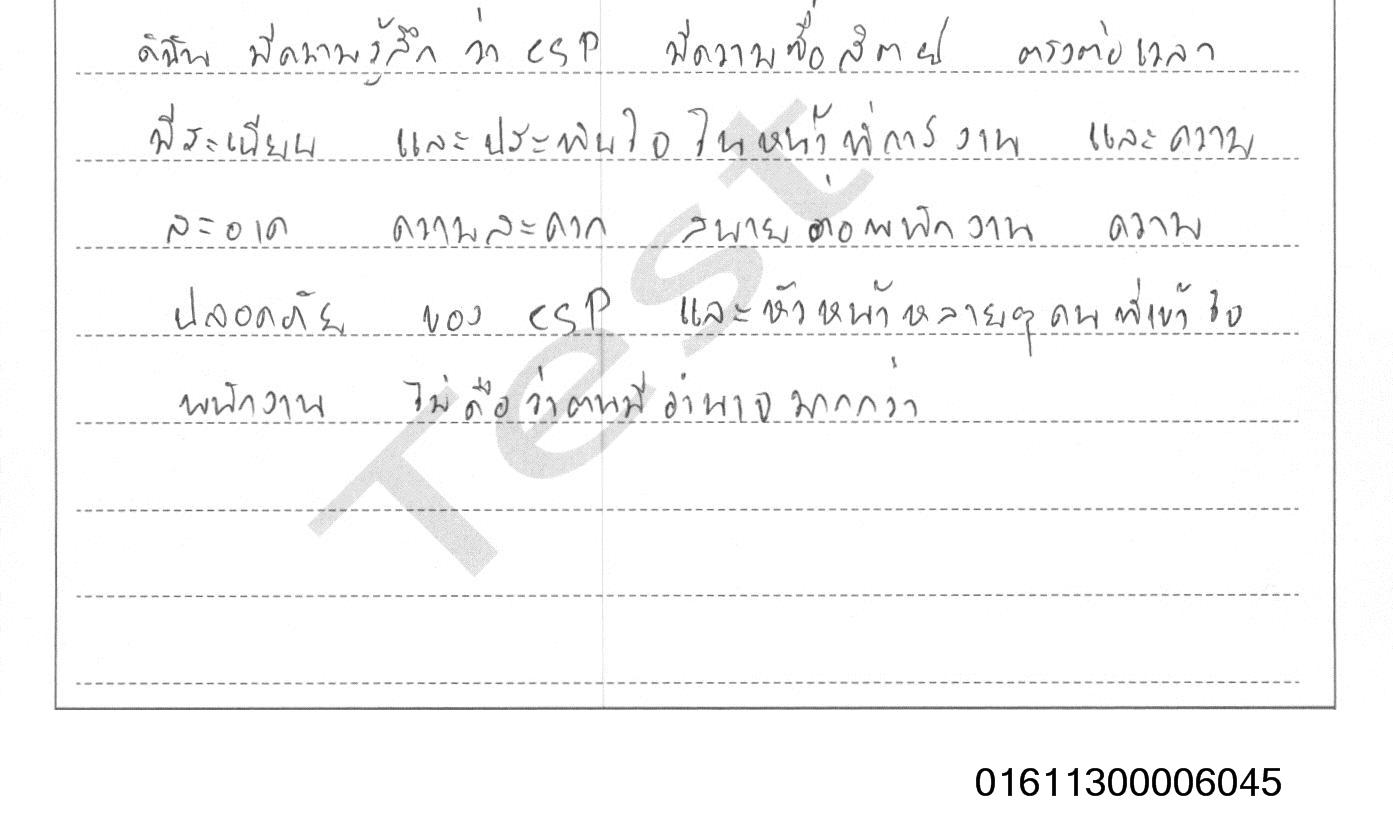 ดิฉัน มีความรู้สึก ว่า CSP มีความซื่อสัตย์ ตรงต่อเวลา
มีระเบียบ และประทับใจในหน้าที่การงาน และความ
สะอาด ความสะดวก สบายต่อพนักงาน ความ
ปลอดภัย ของ CSP และหัวหน้าหลายๆคนที่เข้าใจ
พนักงาน ไม่ถือว่าตนมีอำนาจมากกว่า
Test
01611300006045